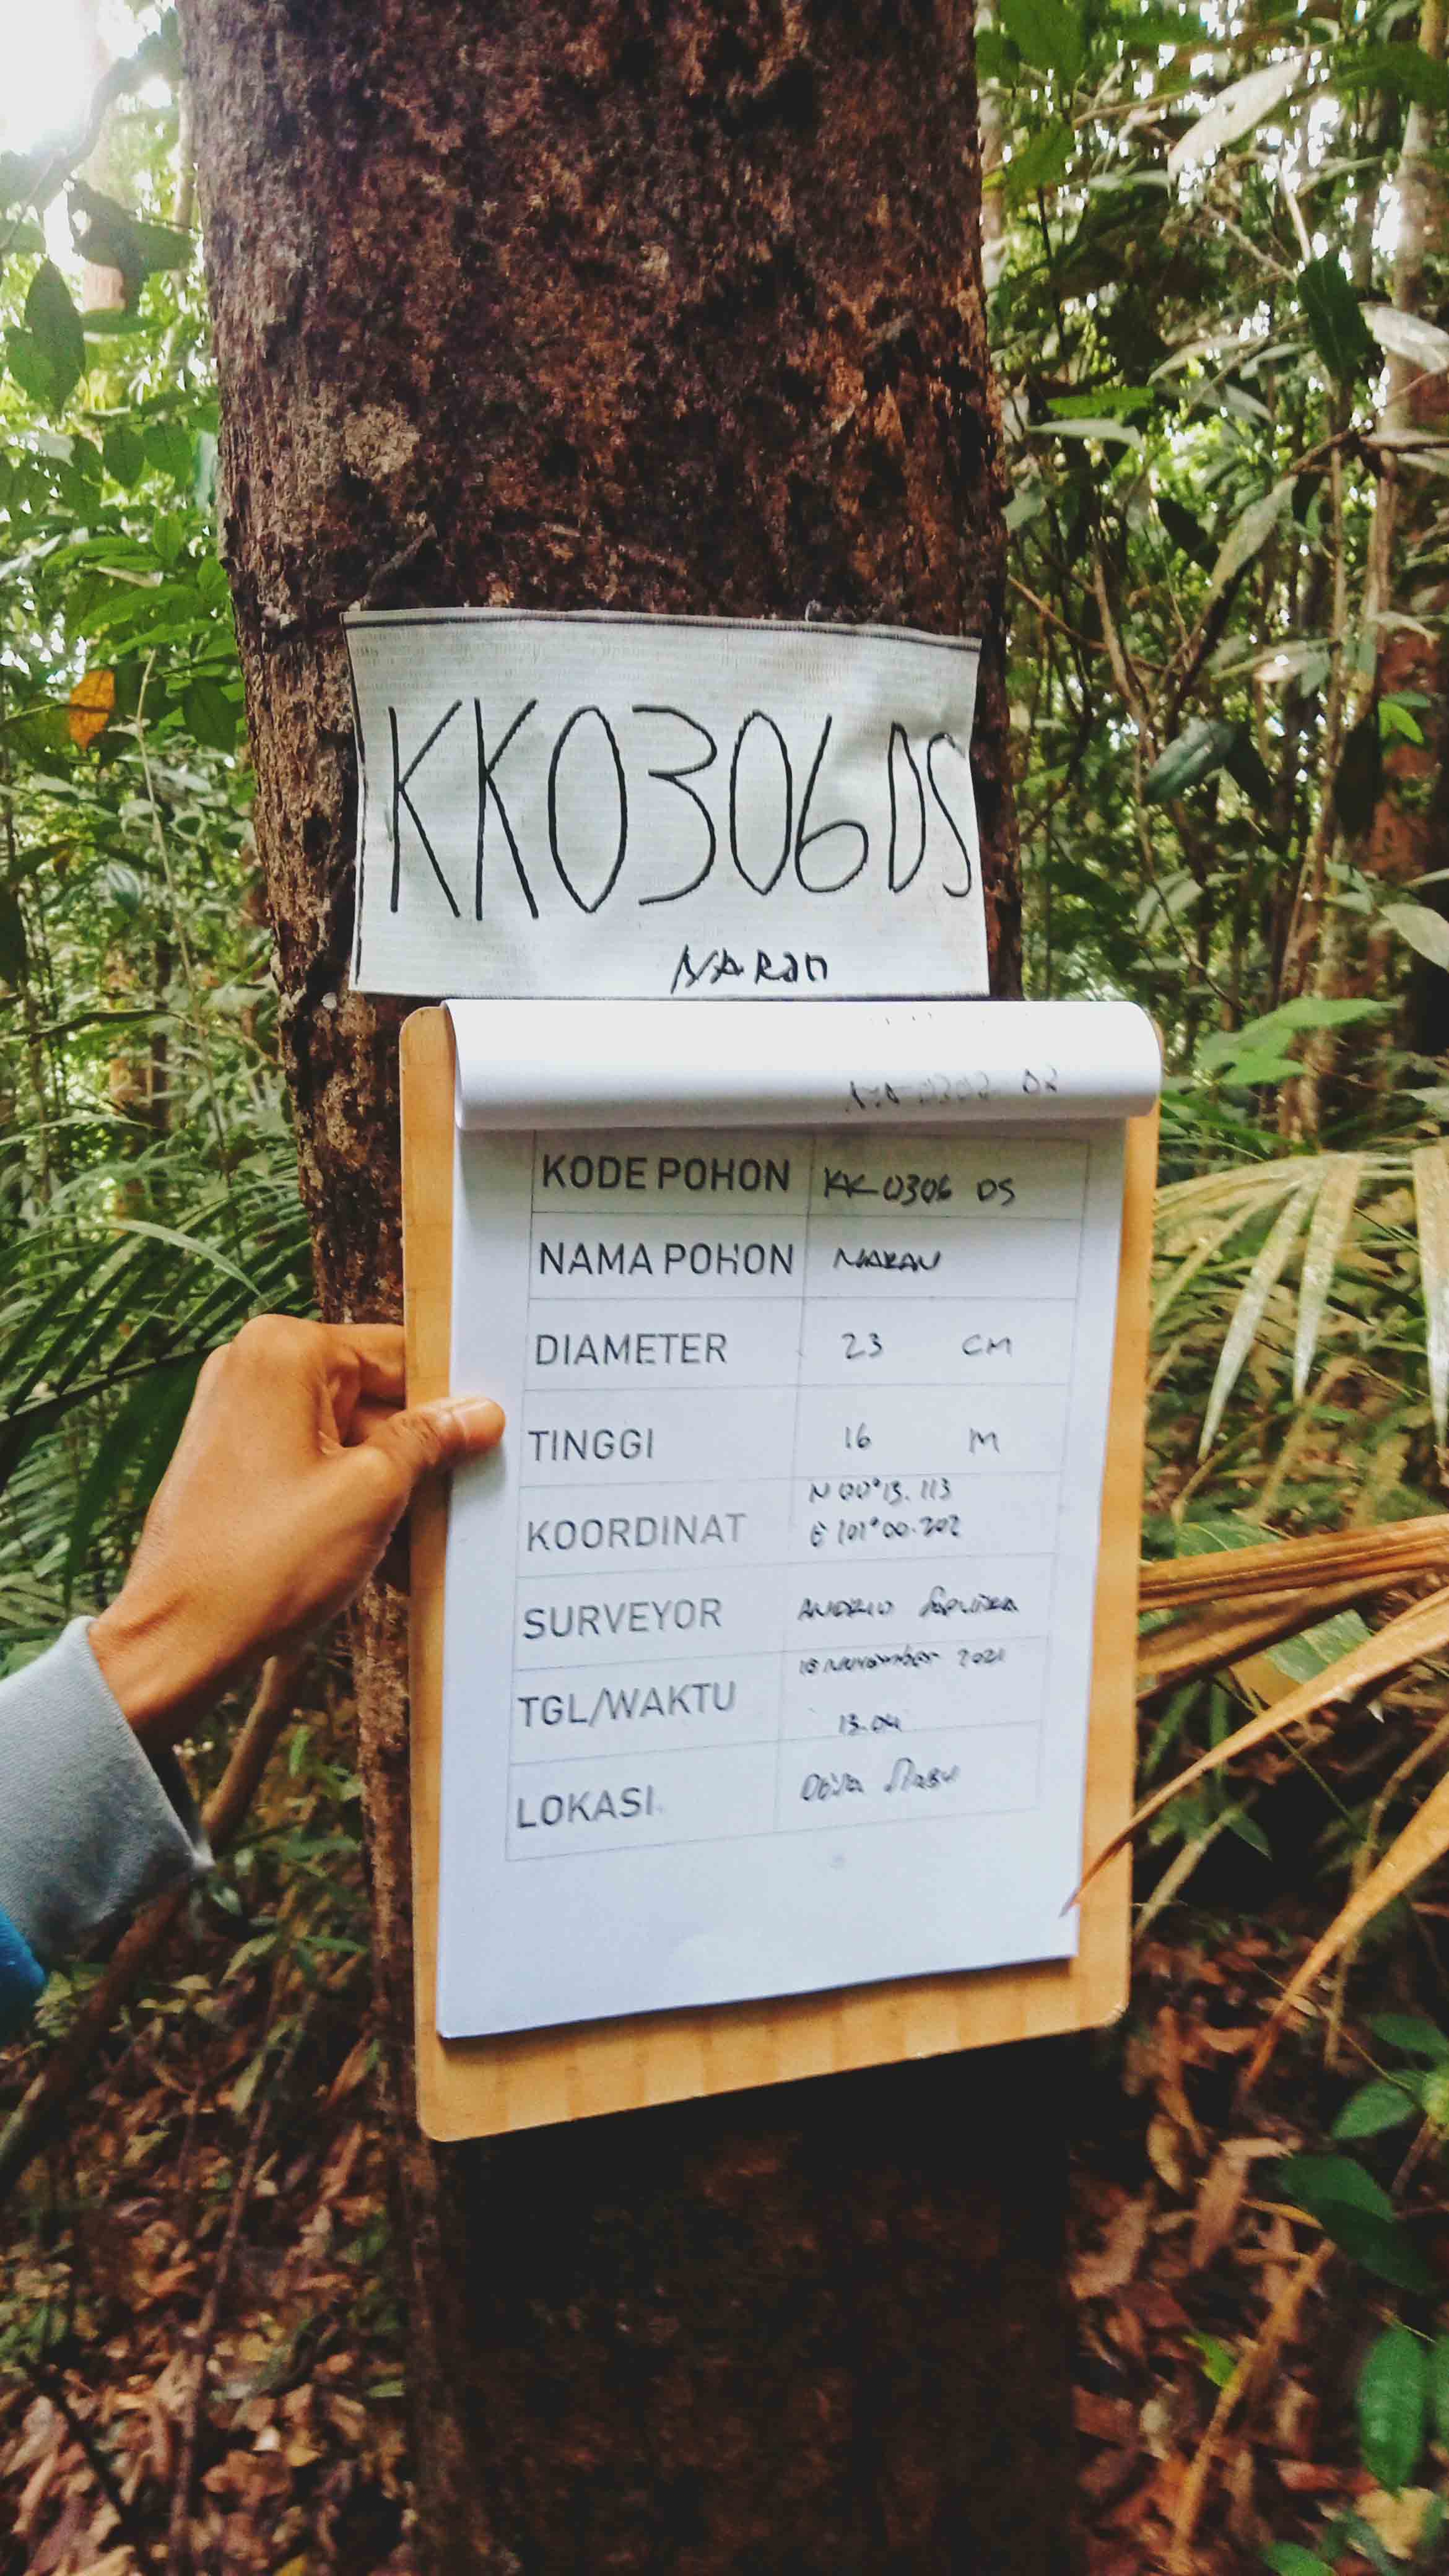 KK0306 DS
NARAN
KODE POHON KK 0306 DS
NAMA POHON NARAN
DIAMETER 23 CM
TINGGI 16 M
KOORDINAT N 00°13.113
E 101°00.202
SURVEYOR ANDRIO SAPUTRA
TGL/WAKTU 18 November 2021
13.04
LOKASI Desa